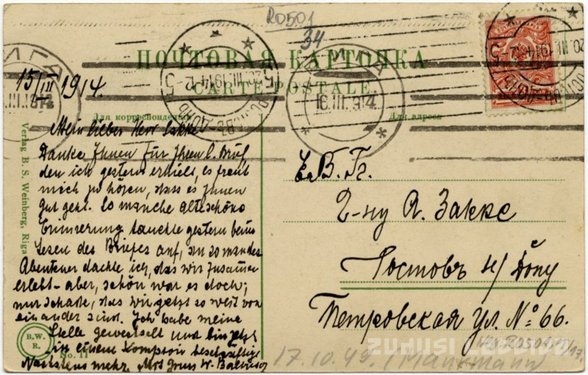 R0501
34
ПОЧТОВАЯ КАРТОЧКА
CARTE POSTALE
РИГА
16.III.914
15/III 1914.
Для корреспонденціи
Для адреса
Mein lieber Herr Sakke
Danke Ihnen für Ihren l. Brief,
den ich gestern erhielt, es freut
mich zu hören, dass es Ihnen
gut geht. So manche alte schöne
Erinnerung tauchte gestern beim
Lesen des Briefes auf, an so manches
Abenteuer dachte ich, das wir zusammen
erlebt - aber, schön war es doch;
nur schade, dass wir jetzt so weit von
einander sind. Ich habe meine
Stelle gewechselt und bin jetzt
in einem Komptoir beschäftigt
Nächstens mehr.
Е.В.Г.
2-ну А. Закке
Ростовъ н/Дону
Петровская ул. № 66.
Verlag B. S. Weinberg, Riga
B.W.
R.
No. 11
17.10.42
ZUDUSI LATVIJA